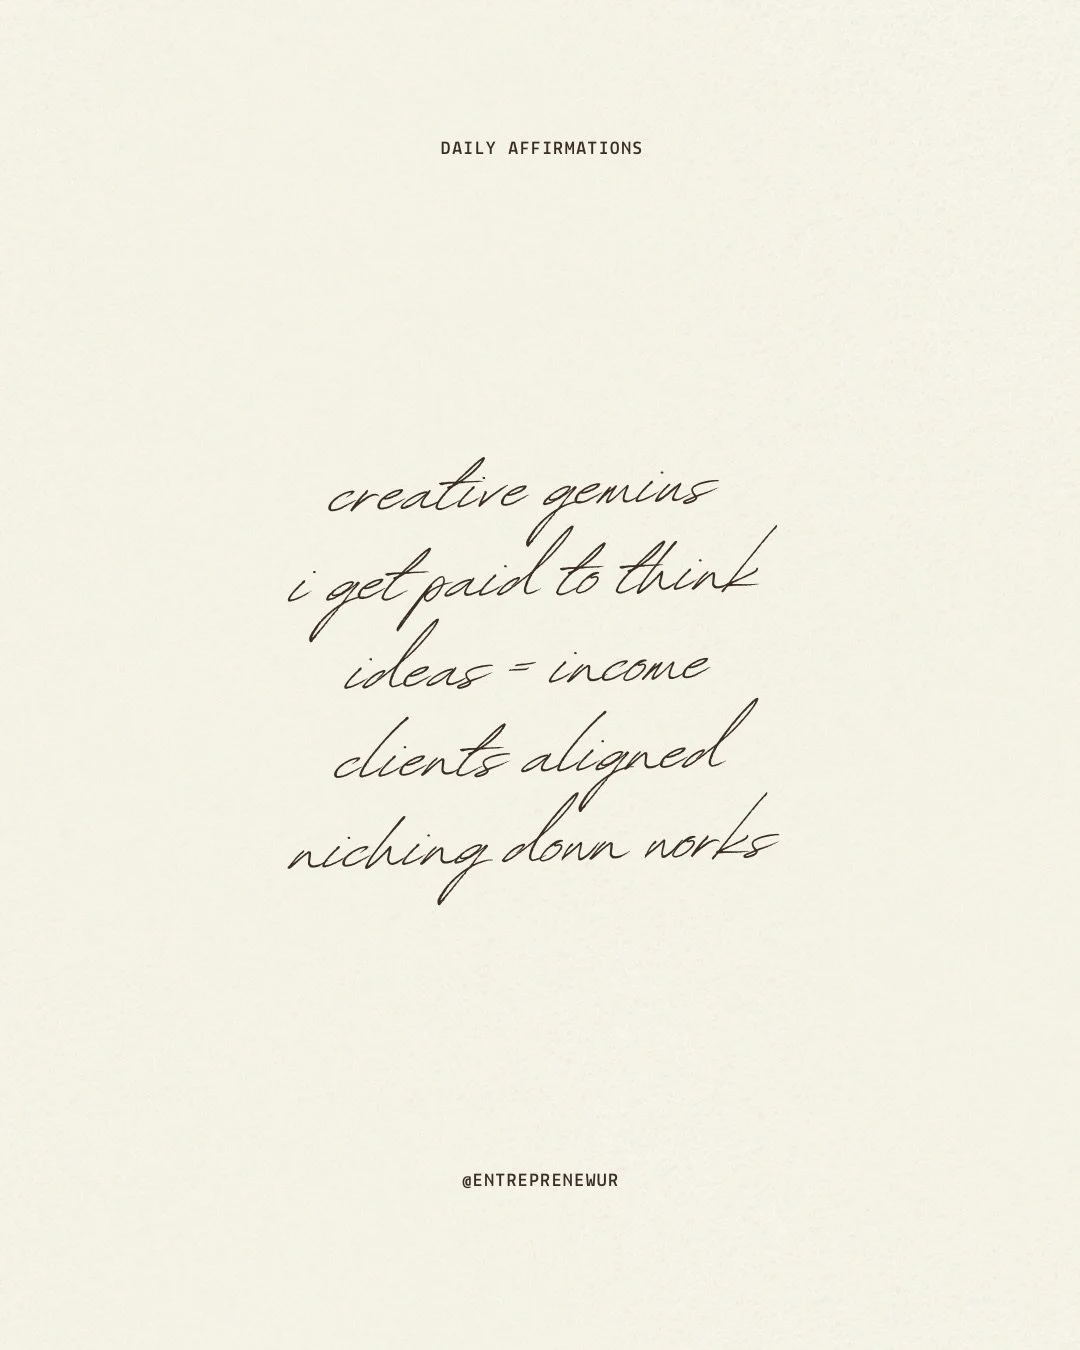 DAILY AFFIRMATIONS
creative genius
i get paid to think
ideas = income
clients aligned
niching down works
@ENTREPRENEWUR